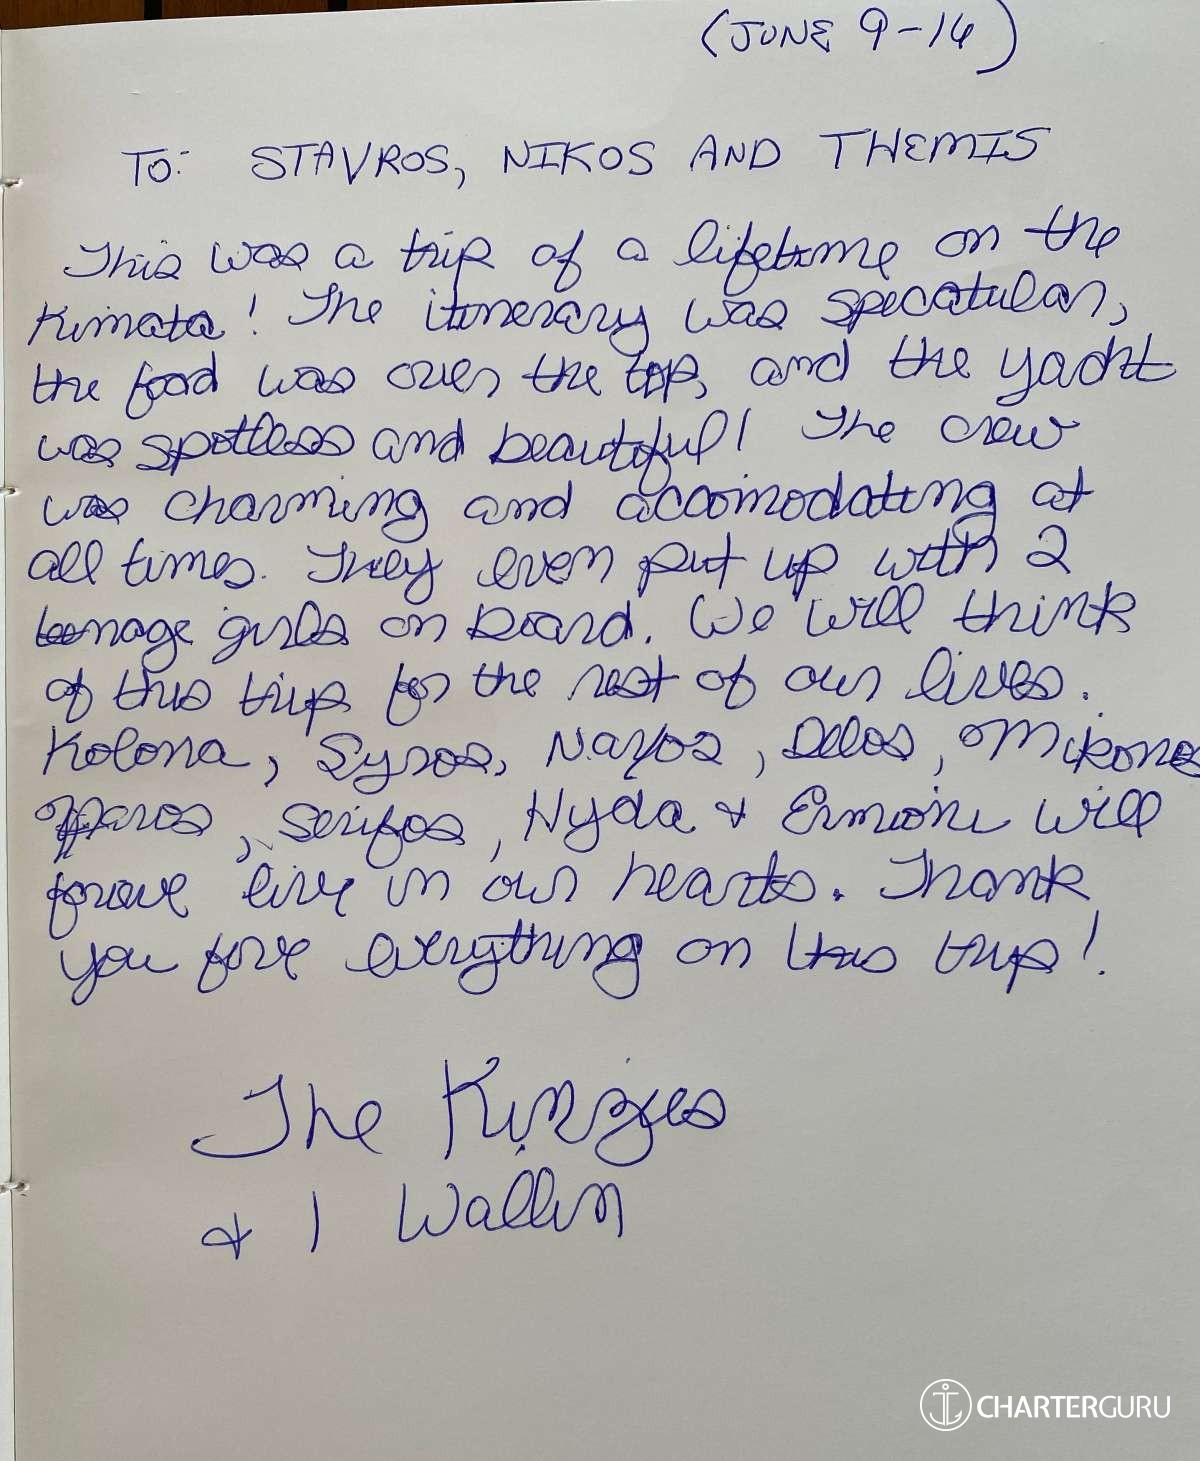 (JUNE 9-14)
TO: STAVROS, NIKOS AND THEMIS
This was a trip of a lifetime on the
Kimata! The itinerary was specatular,
the food was over the top, and the yacht
was spotless and beautiful! The crew
was charming and accomodating at
all times. They even put up with 2
teenage girls on board. We will think
of this trip for the rest of our lives.
Kolona, Syros, Naxos, Delos, Mikonos
Paros, Serifos, Hyda & Ermioni will
live in our hearts. Thank
you for everything on this trip!
The Kinzies
& 1 Wallin
CHARTERGURU